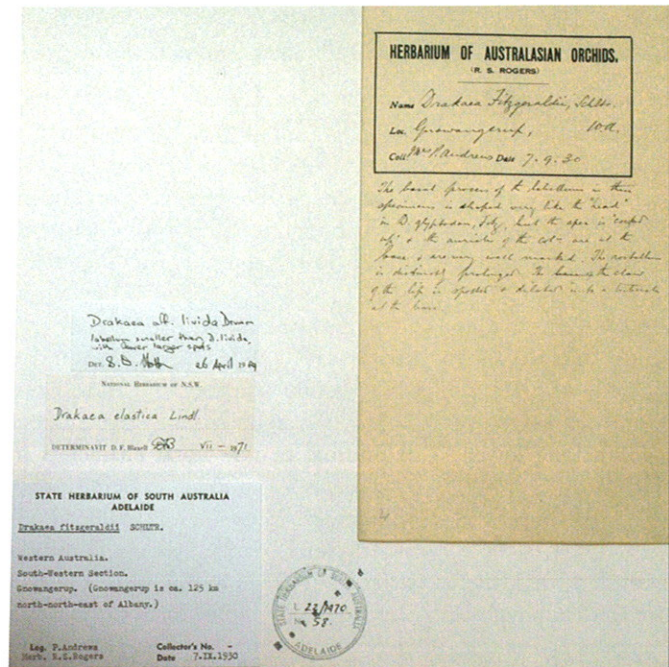 HERBARIUM OF AUSTRALASIAN ORCHIDS.
(R. S. ROGERS)
Name Drakaea Fitzgeraldii, Schltr.
Loc. Gnowangerup, W.A.
Coll. Mrs P. Andrews Date 7.9.30
The basal process of the labellum in these
specimens is shaped very like the "head"
in D. glyptodon, Fitz, but the apex is
& the auricles of the col- are at the
base & are very well marked. The rostellum
is distinctly prolonged. The
of the lip is & dilated into a
at the base.
Drakaea aff. livida Drumm
labellum smaller than D. livida,
with fewer larger spots
DET. 26 April 1989
NATIONAL HERBARIUM OF N.S.W.
Drakaea elastica Lindl.
DETERMINAVIT D. F. Blaxell VII – 1971
STATE HERBARIUM OF SOUTH AUSTRALIA
ADELAIDE
Drakaea fitzgeraldii SCHLTR.
Western Australia.
South-Western Section.
Gnowangerup. (Gnowangerup is ca. 125 km
north-north-east of Albany.)
Leg. P.Andrews Collector's No. -
Herb. R.S.Rogers Date 7.IX.1930
STATE HERBARIUM OF SOUTH AUSTRALIA
ADELAIDE